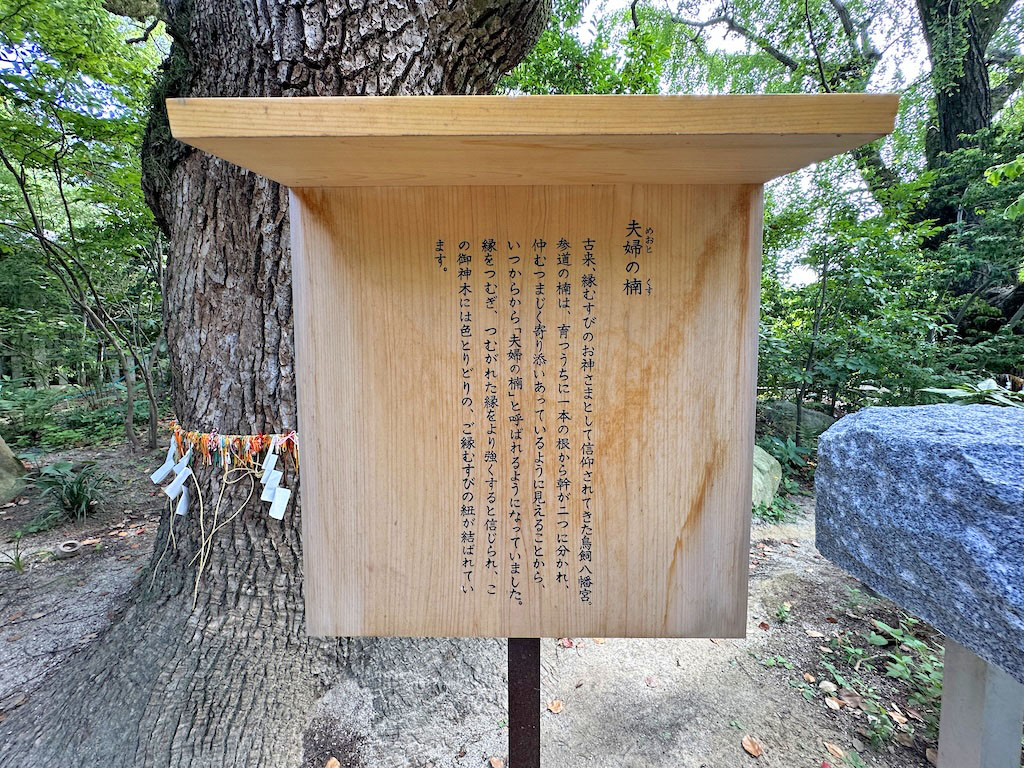 夫婦の楠
めおと くす
古来、縁むすびのお神さまとして信仰されてきた鳥飼八幡宮。
参道の楠は、育つうちに一本の根から幹が二つに分かれ、
仲むつまじく寄り添いあっているように見えることから、
いつからから「夫婦の楠」と呼ばれるようになっていました。
縁をつむぎ、つむがれた縁をより強くすると信じられ、こ
の御神木には色とりどりの、ご縁むすびの紐が結ばれてい
ます。